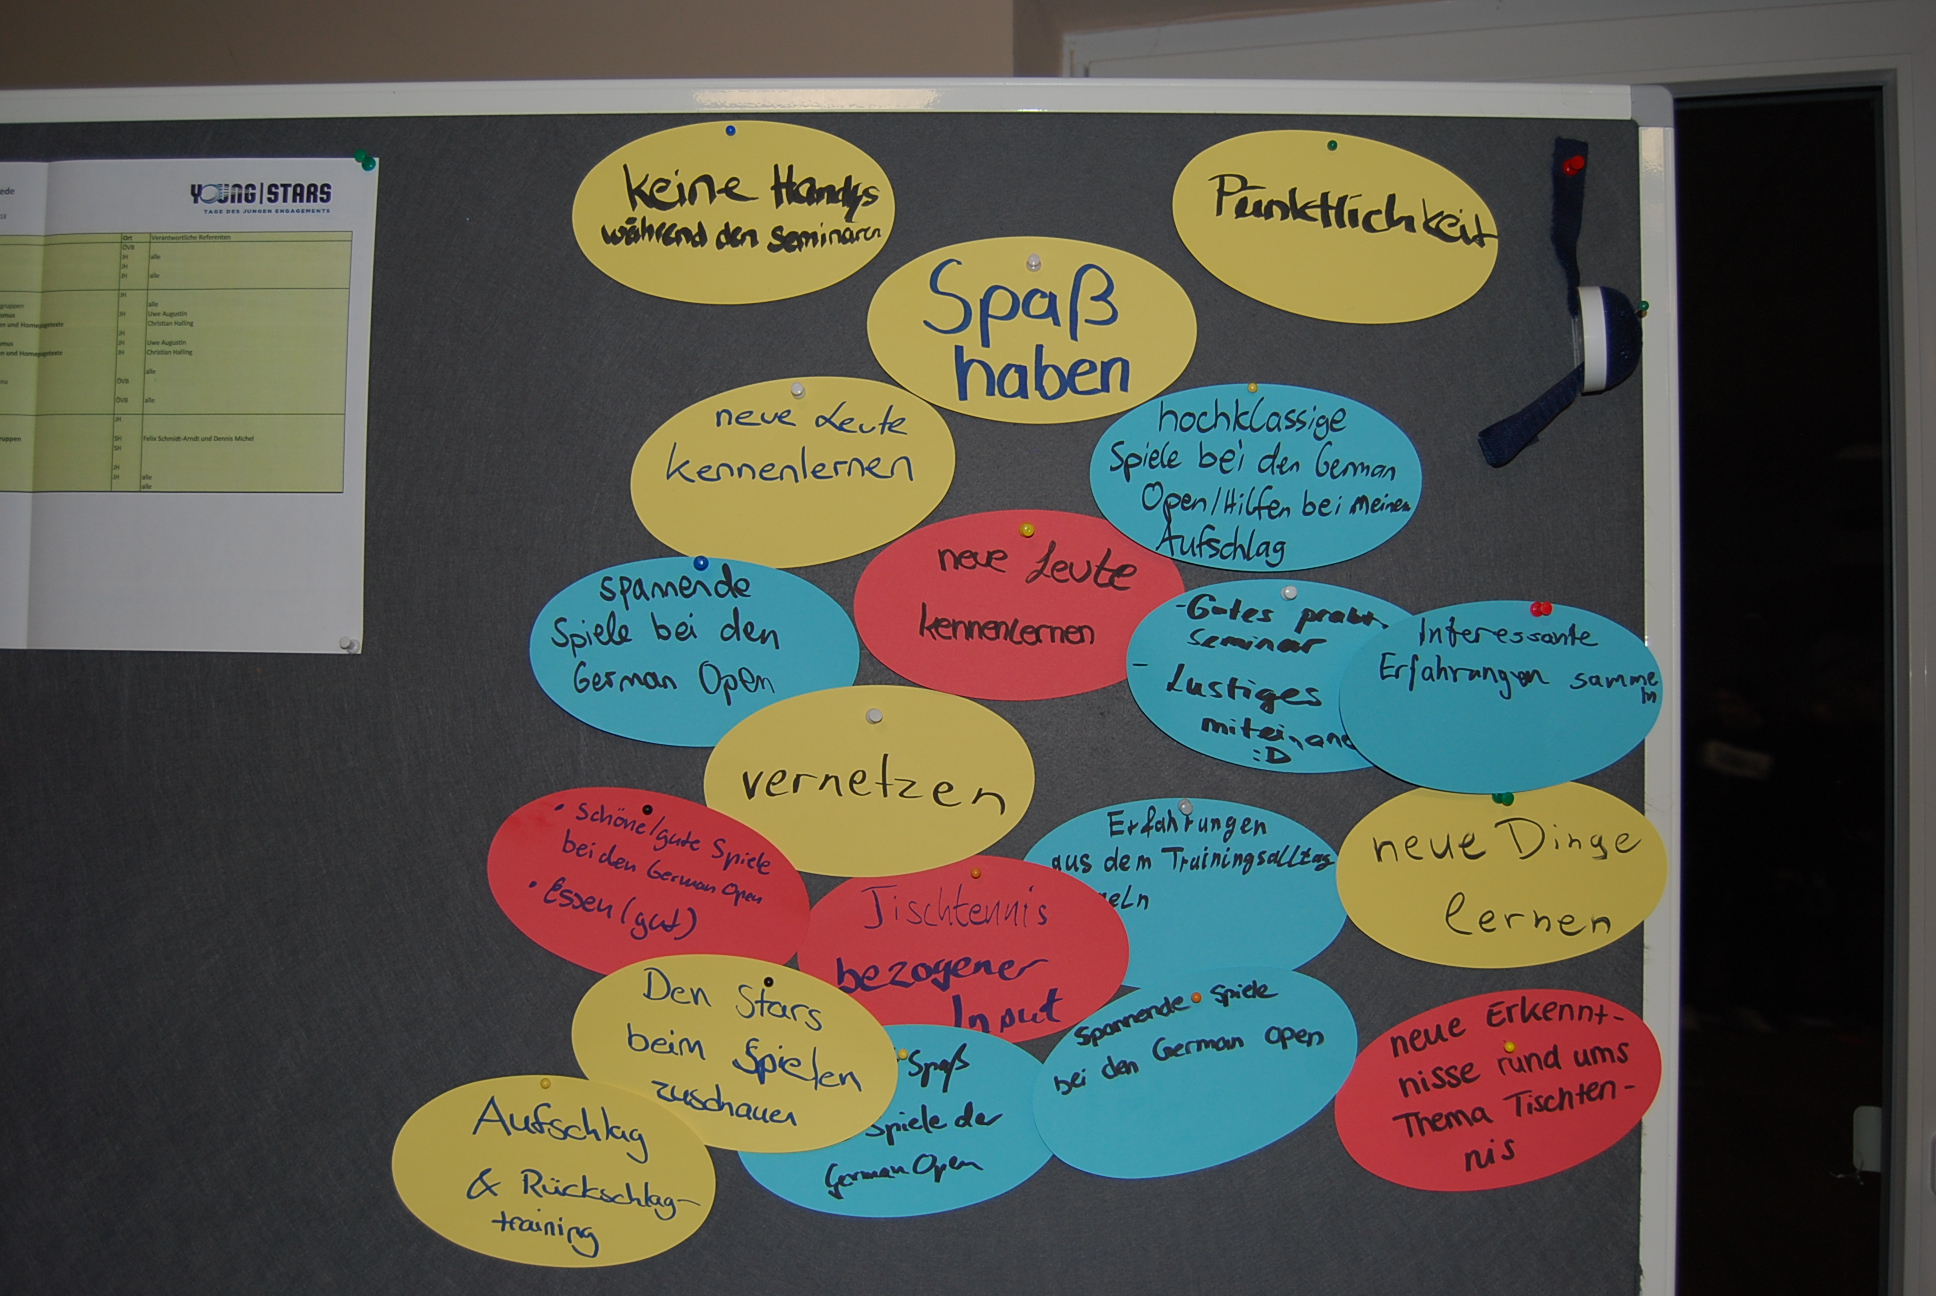 YOUNG|STARS
TAGE DES JUNGEN ENGAGEMENTS
ede
Ort Verantwortliche Referenten
ÖVB
JH alle
JH
JH alle
JH
alle
gruppen
JH Uwe Augustin
Christian Halling
en und Homepagetexte
JH
JH Uwe Augustin
JH Christian Halling
en und Homepagetexte
alle
ÖVB
ÖVB alle
JH
SH Felix Schmidt-Arndt und Dennis Michel
SH
JH
JH alle
alle
keine Handys
während den seminaren
Pünktlichkeit
Spaß
haben
neue Leute
kennenlernen
hochklassige
Spiele bei den German
Open/Hilfen bei meinem
Aufschlag
spannende
Spiele bei den
German Open
neue Leute
kennenlernen
-Gutes prakt.
seminar
- Lustiges
miteinand
:D
Interessante
Erfahrungen samme
ln
vernetzen
• Schöne/gute Spiele
bei den German Open
• Essen (gut)
Tischtennis
bezogener
Input
Erfahrungen
aus dem Trainingsalltag
eln
neue Dinge
lernen
Den Stars
beim Spielen
zuschauen
Spaß
Spiele der
German Open
Spannende Spiele
bei den German Open
neue Erkennt-
nisse rund ums
Thema Tischten-
nis
Aufschlag
& Rückschlag-
training